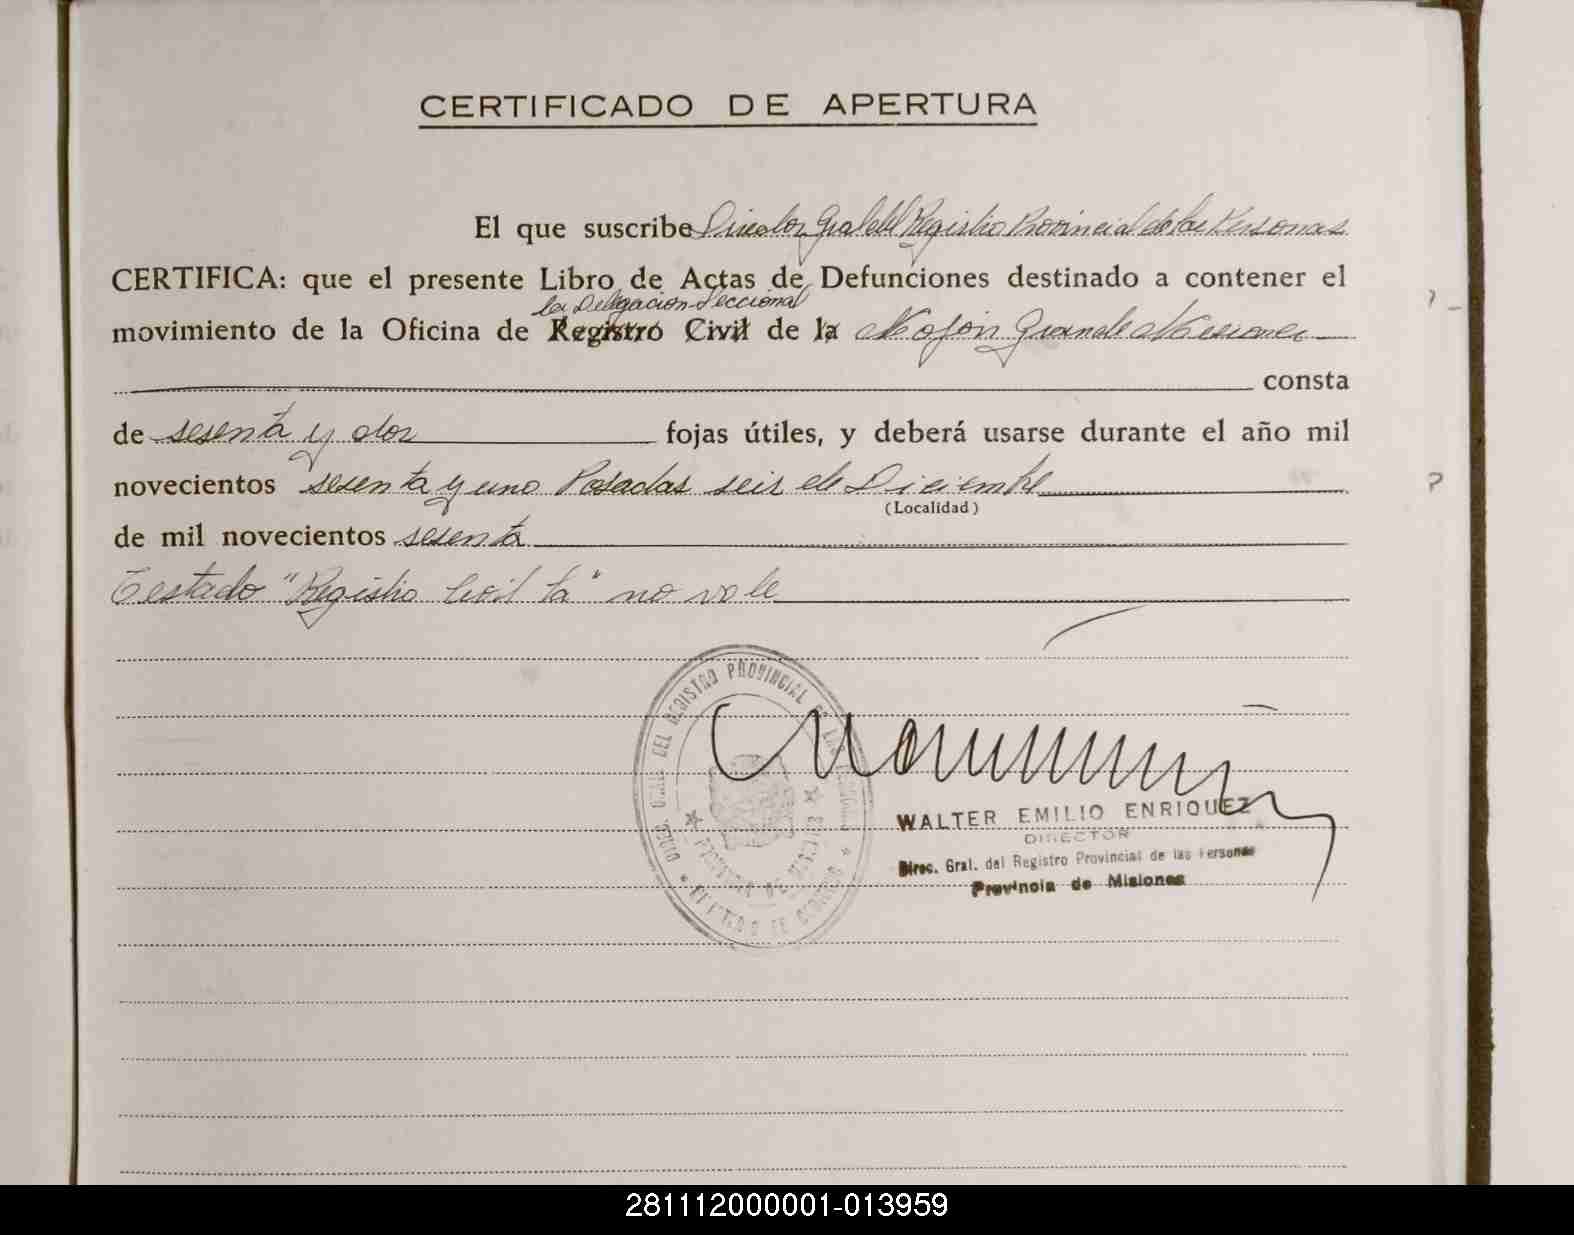 CERTIFICADO DE APERTURA
El que suscribe Director Gral del Registro Provincial de las Personas
CERTIFICA: que el presente Libro de Actas de Defunciones destinado a contener el
la Delegacion Seccional
movimiento de la Oficina de Registro Civil de la Mojón Grande Misiones
consta
de sesenta y dos fojas útiles, y deberá usarse durante el año mil
novecientos sesenta y uno Posadas seis de Diciembre
(Localidad)
de mil novecientos sesenta
Testado "Registro Civil la" no vale
DIREC. GRAL. DEL REGISTRO PROVINCIAL DE LAS PERSONAS
PROVINCIA DE MISIONES
WALTER EMILIO ENRIQUEZ
DIRECTOR
Direc. Gral. del Registro Provincial de las Personas
Provincia de Misiones
281112000001-013959